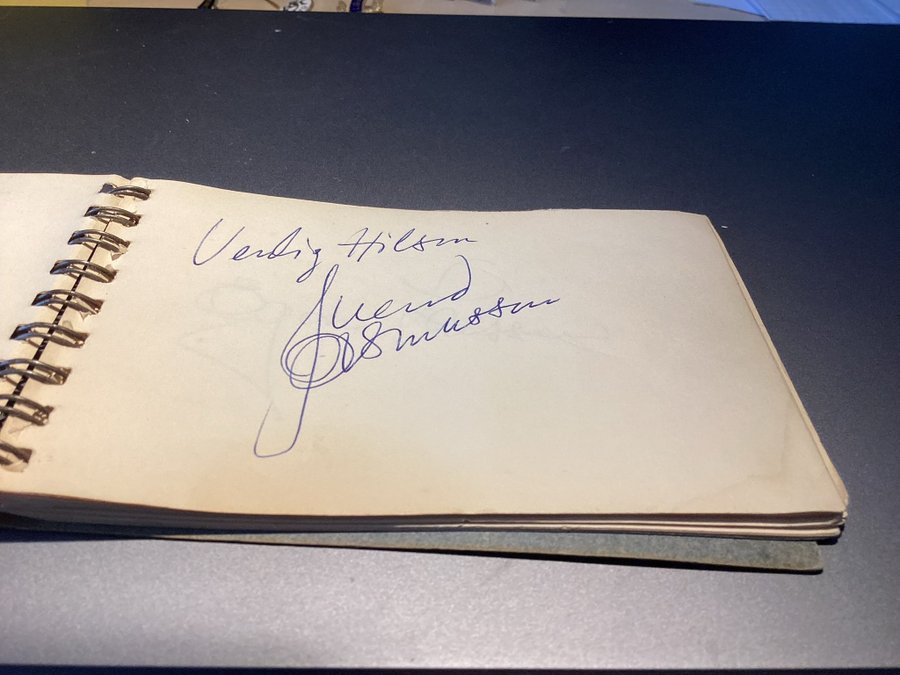 Venlig Hilsen
Svend
Asmussen